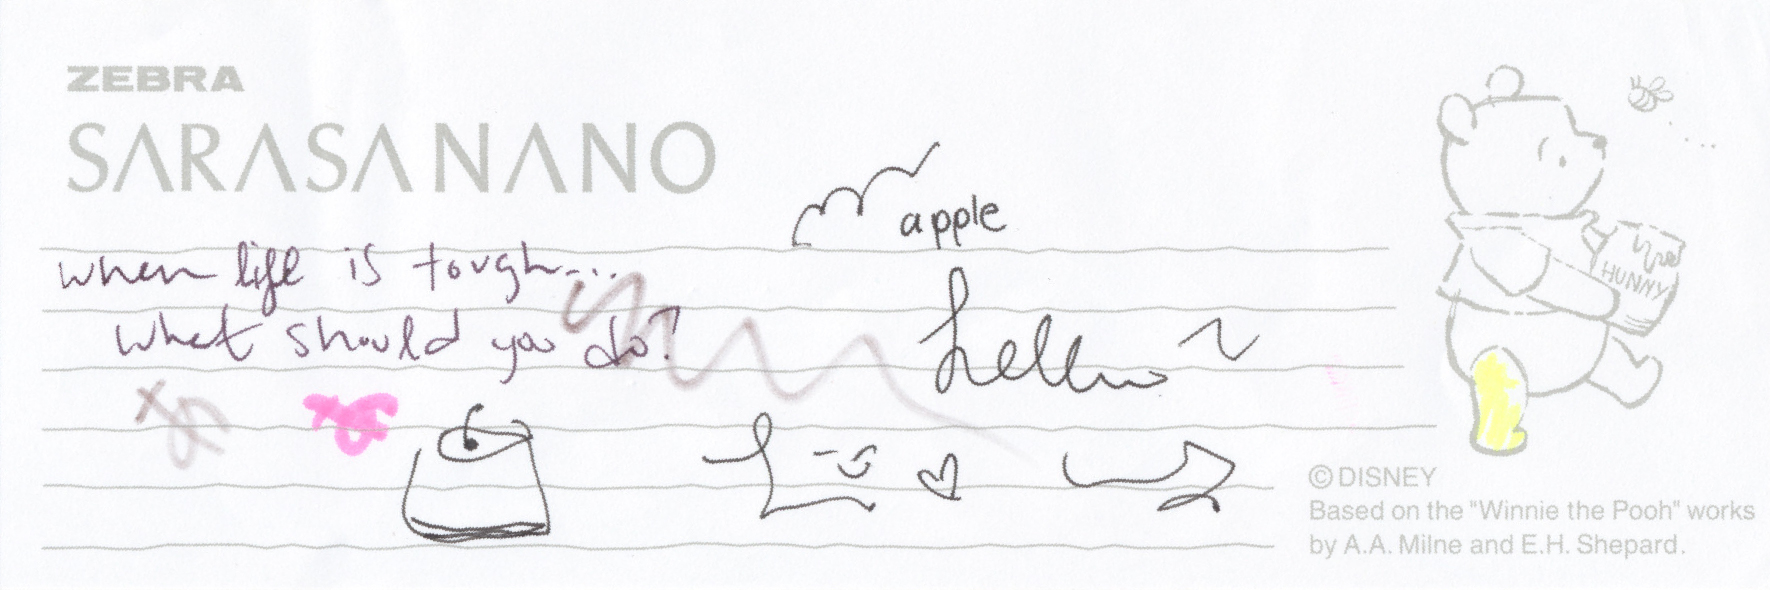 ZEBRA
SARASA NANO
apple
when life is tough...
what should you do?
hello ~
HUNNY
© DISNEY
Based on the "Winnie the Pooh" works
by A.A. Milne and E.H. Shepard.